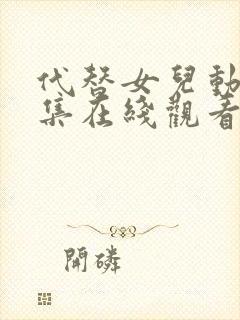 代替女兒動
集在綫觀看
開磷